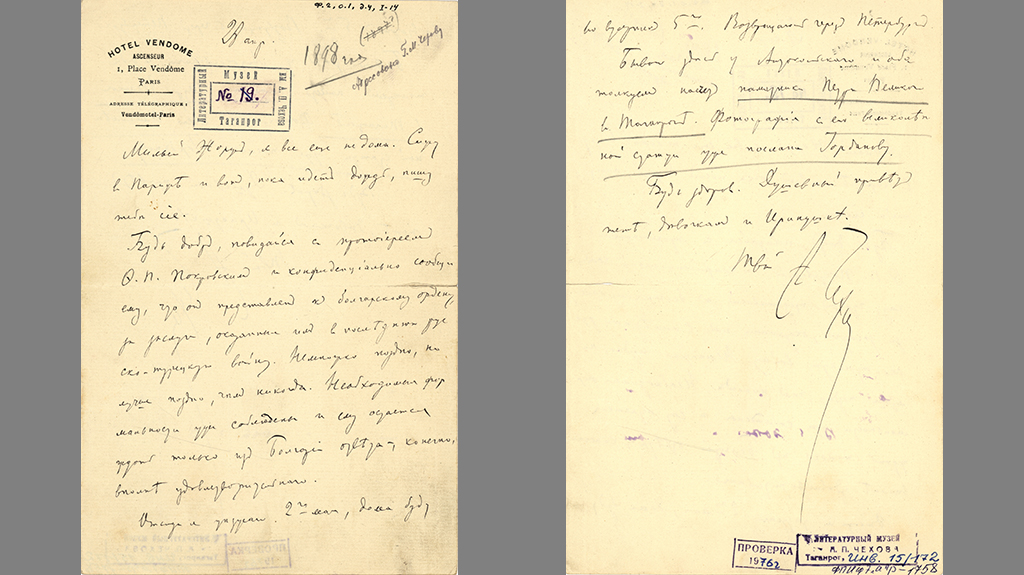 Ф.2, О.1, д.4, I-14
HOTEL VENDOME
ASCENSEUR
1, Place Vendôme
PARIS
ADRESSE TÉLÉGRAPHIQUE:
Vendômotel-Paris
Литературный Музей им. А. П. Чехова
№ 19.
Таганрог
23 апр.
1898 года
(1897?)
Милый Жорж, я все еще не дома. Сижу
в Париже и вот, пока идет дождь, пишу
тебе сие.
Будь добр, повидайся с протоиереем
Ѳ. П. Покровским и конфиденциально сообщи
ему, что он представлен к болгарскому ордену
за заслуги, оказанные им в последнюю рус
ско-турецкую войну. Немножко поздно, но
лучше поздно, чем никогда. Необходимыя фор
мальности уже соблюдены и ему остается
ждать только из Болгарии ответа, конечно,
вполне удовлетворительного.
Отсюда я уезжаю 2го мая, дома буду
5го. Возвращаюсь через Петербург.
Бываю здесь у Антокольского и оба
толкуем насчет памятника Петра Великаго
в Таганроге. Фотография с его великолеп
ной статуи уже послана Иорданову.
Будь здоров. Душевный привет
тете, девочкам и Иринушке.
Твой А. Чехов
ПРОВЕРКА
1976г
ЛИТЕРАТУРНЫЙ МУЗЕЙ
А. П. ЧЕХОВА
Таганрог, Инв. 15/172
ПРОВЕРКА